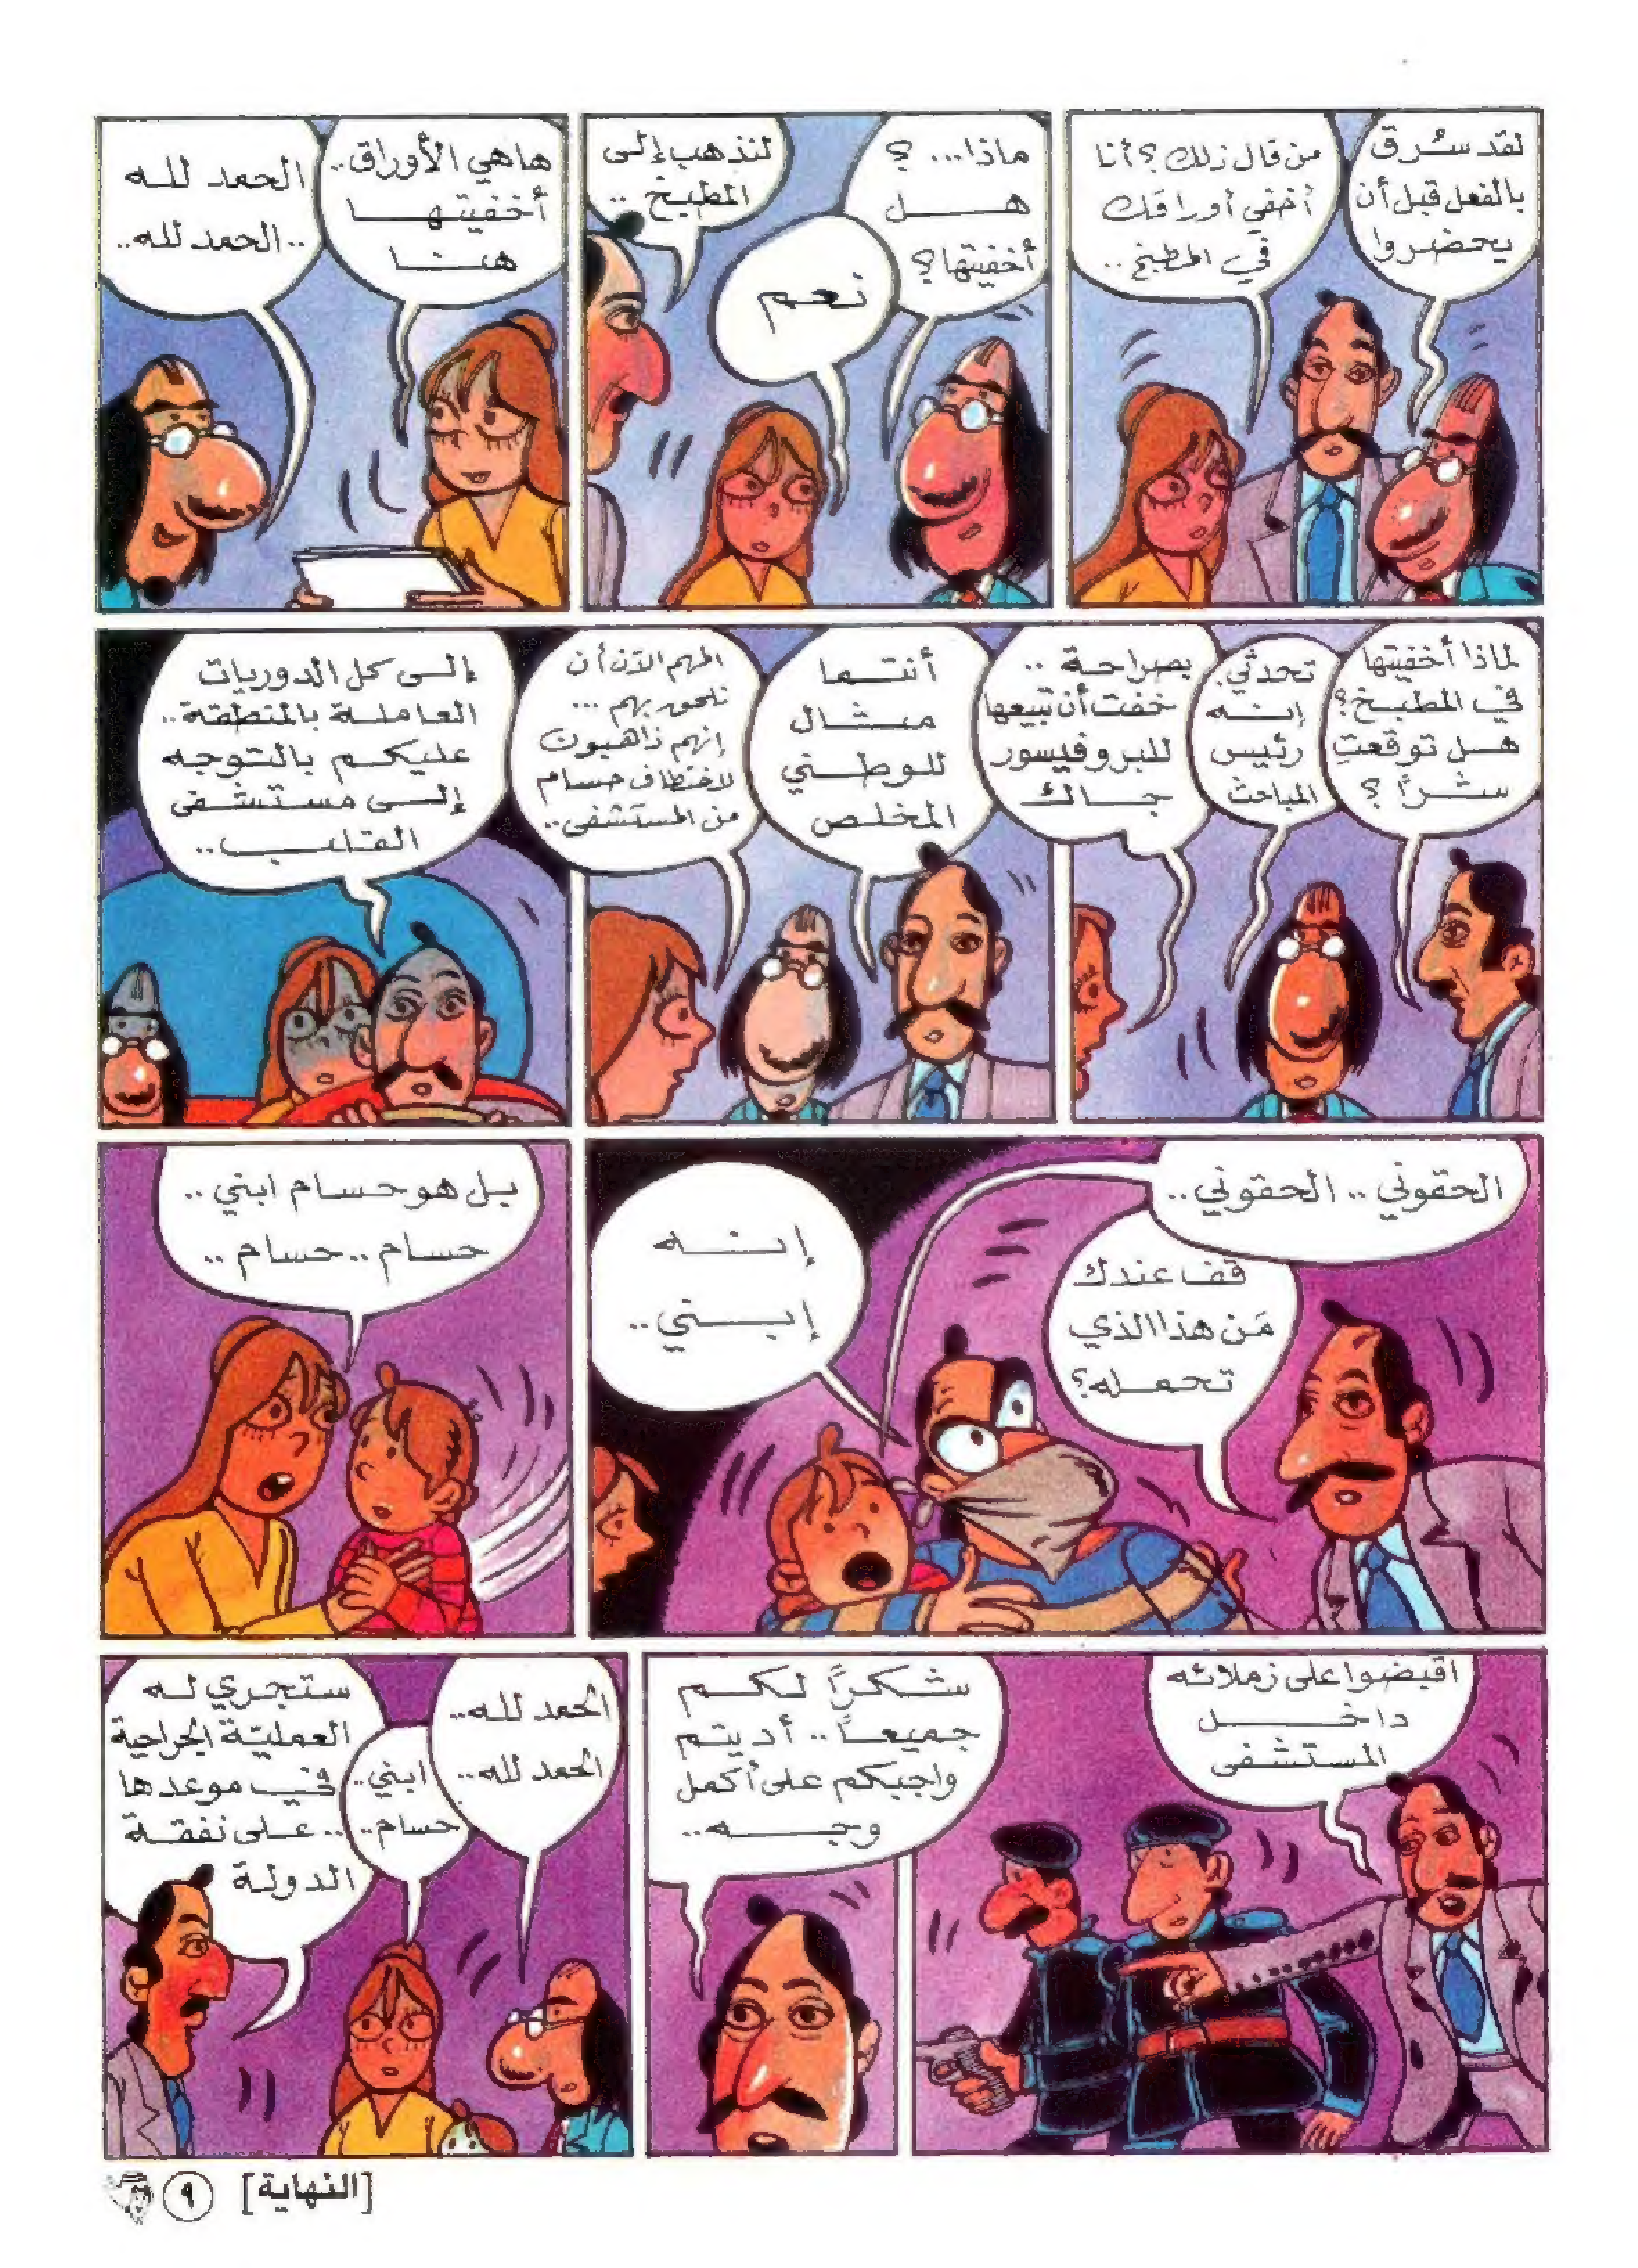 لقد سُرق
بالفعل قبل أن
يحضروا
من قال ذلك؟ أنا
أخفي أوراقك
في المطبخ..
ماذا...؟
هل
أخفيتها؟
نعم
لنذهب إلى
المطبخ..
هاهي الأوراق..
أخفيتها
هنا
الحمد لله
..الحمد لله..
لماذا أخفيتها
في المطبخ؟
هل توقعتِ
شراً؟
تحدثي.
إنه
رئيس
المباحث
بصراحة..
خفت أن تبيعها
للبروفيسور
جاك
أنتما
مثال
للوطني
المخلص
المهم الآن أن
نلحق بهم...
إنهم ذاهبون
لاختطاف حسام
من المستشفى..
إلى كل الدوريات
العاملة بالمنطقة..
عليكم بالتوجه
إلى مستشفى
القلب..
الحقوني.. الحقوني..
قف عندك
مَن هذا الذي
تحمله؟
إنه
إبني..
بل هو حسام ابني..
حسام.. حسام..
اقبضوا على زملائه
داخل
المستشفى
شكراً لكم
جميعاً.. أديتم
واجبكم على أكمل
وجه..
الحمد لله..
الحمد لله..
ابني..
حسام..
ستجري له
العمليّة الجراحية
في موعدها
.. على نفقة
الدولة
[النهاية] ٩